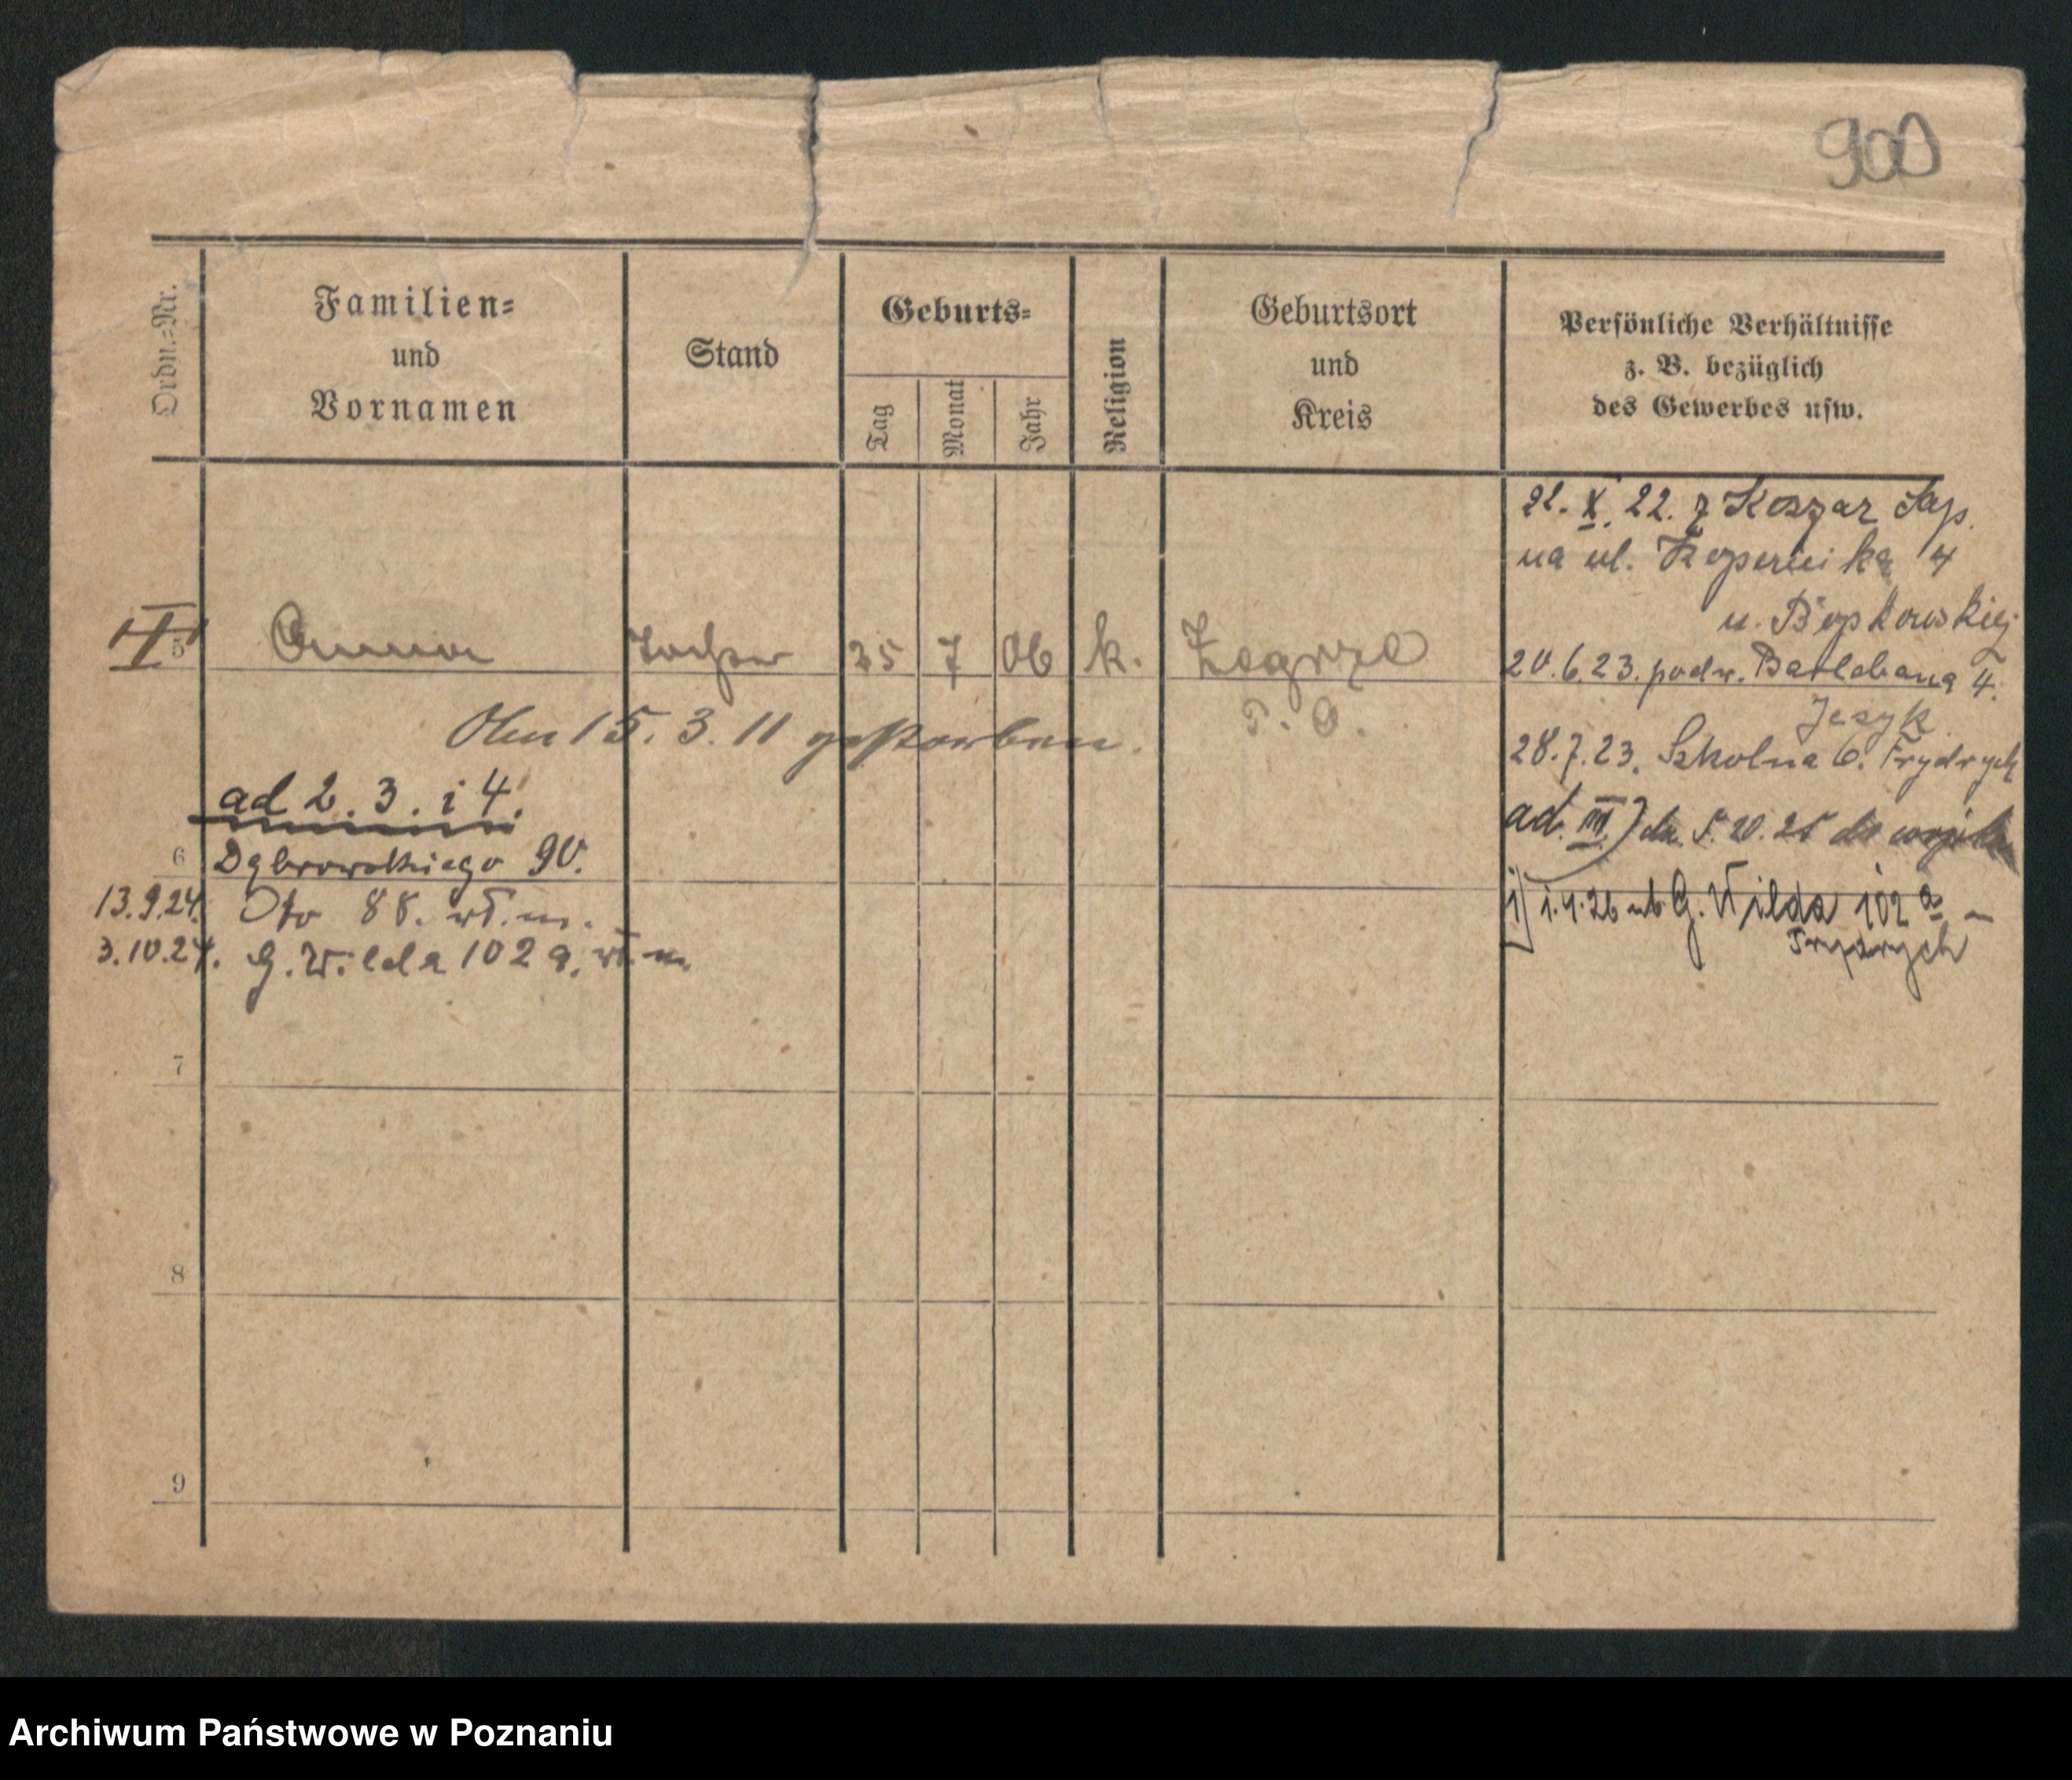 900
Ordn.=Nr.
Familien=
und
Vornamen
Stand
Geburts=
Tag
Monat
Jahr
Religion
Geburtsort
und
Kreis
Persönliche Verhältnisse
z. B. bezüglich
des Gewerbes usw.
21. X. 22. z Koszar Sap.
na ul. Kopernika 4
u.
5 Anna Tochter 25 7 06 k. Zegrze
P. O.
20.6.23. podr. 4.
Jezyk
Am 15. 3. 11 gestorben.
28.7.23. Szkolna 6. Frydrych
ad 2. 3. i 4.
ad. III) 
6 Dąbrowskiego 90.
13.9.24. Oto 88. wł. m.
1.4.26 G. Wilda 102 a
Frydrych
3.10.24. G. Wilda 102 a. wł. m.
7
8
9
Archiwum Państwowe w Poznaniu